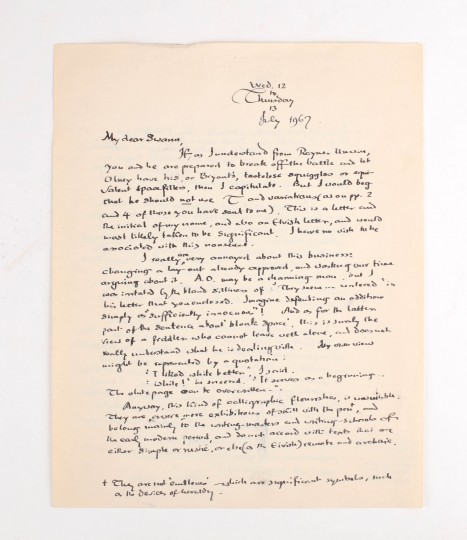 Wed. 12
to
Thursday
13
July 1967
My dear Swann,
If as I understand from Rayner Unwin,
you and he are prepared to break off the battle and let
Olney have his, or Bryant's, tasteless squiggles or equi-
valent spacefillers, then I capitulate. But I would beg
that he should not use and variations (as on pp. 2
and 4 of those you have sent to me). This is a letter and
the initial of my name, and also an Elvish letter, and would
most likely be taken to be significant. I have no wish to be
associated with this nonsense.
I really am very annoyed about this business:
changing a lay-out already approved, and wasting our time
arguing about it. A.O. may be a charming man, but I
was irritated by the bland silliness of "They seem ... entered" in
his letter that you enclosed. Imagine defending an addition
simply as "sufficiently innocuous"! And as for the latter
part of the sentence about 'blank space', this is surely the
view of a fiddler who cannot leave well alone, and does not
really understand what he is dealing with. My own view
might be represented by a quotation:
"I liked white better", I said.
"White!" he sneered. "It serves as a beginning...
The white page can be overwritten..."
Anyway, this kind of calligraphic flourishes, is unsuitable.
They are mere exhibitions of skill with the pen, and
belong mainly to the writing-masters and writing-schools of
the early modern period, and do not accord with texts that are
either simple or rustic, or else (as the Elvish) remote and archaic.
† They are not 'emblems' – which are significant symbols, such
as the devices of heraldry.